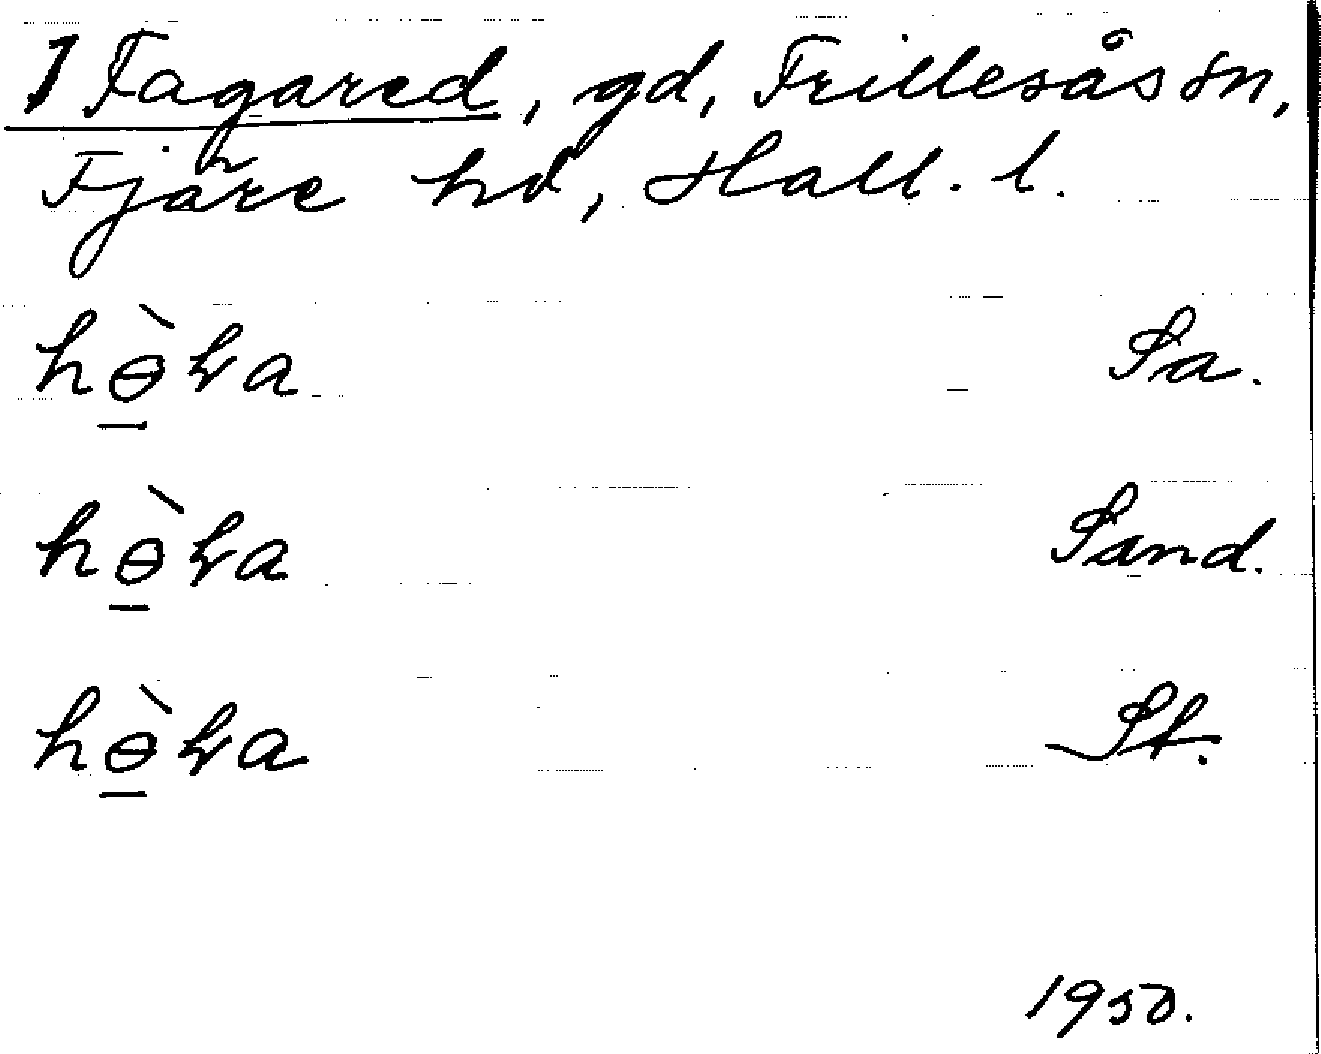 1 Fagared, gd, Frillesås sn,
Fjäre hd, Hall. l.
hɵ̱̀ka Sa.
hɵ̱̀ka Sand.
hɵ̱̀ka St.
1950.